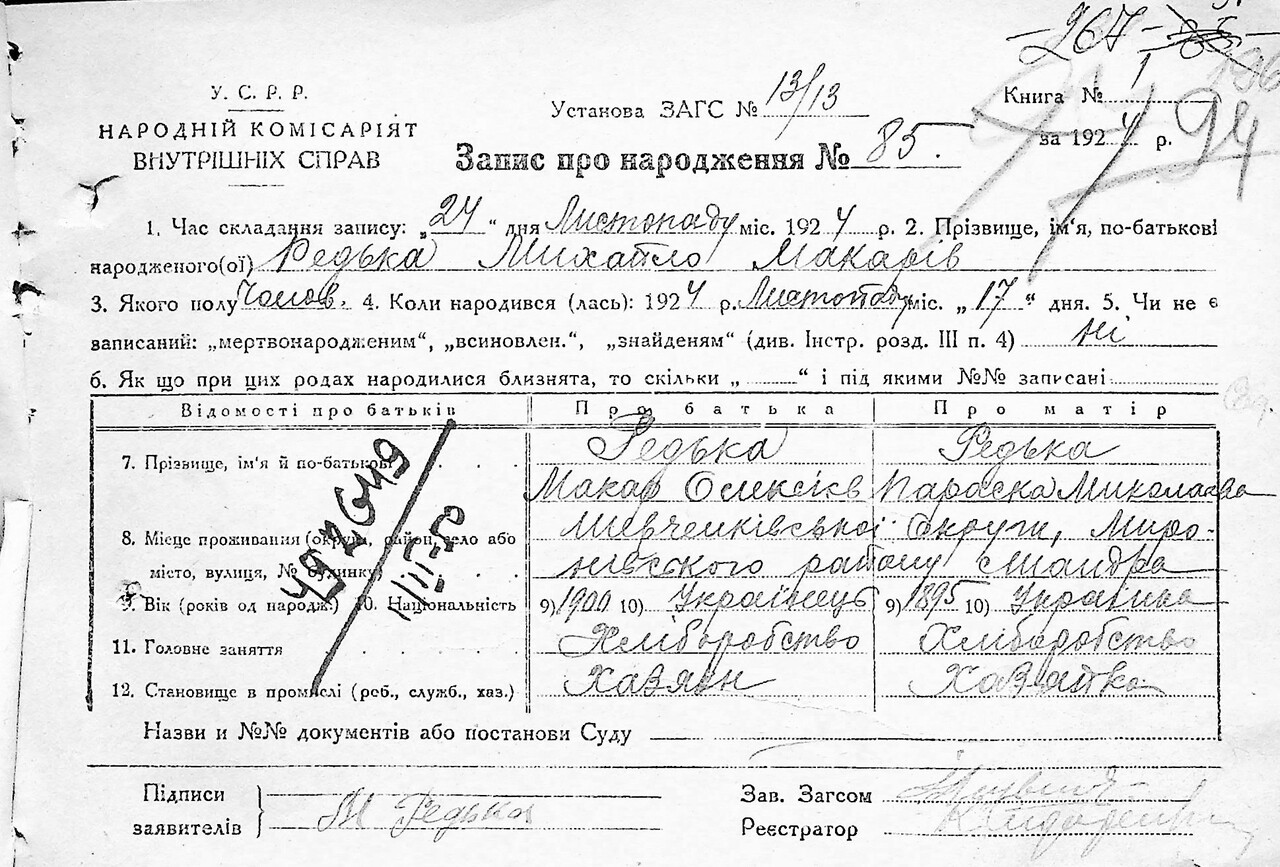 - 267 -
У. С. Р. Р.
НАРОДНІЙ КОМІСАРІЯТ
ВНУТРІШНІХ СПРАВ
Установа ЗАГС № 13/13
Книга № 1
за 1924 р.
94
Запис про народження № 85.
1. Час складання запису: „24“ дня Листопаду міс. 1924 р. 2. Прізвище, ім'я, по-батькові
народженого(ої) Редька Михайло Макарів
3. Якого полу Чолов. 4. Коли народився (лась): 1924 р. Листопаду міс. „17“ дня. 5. Чи не є
записаний: „мертвонародженим“, „всиновлен.“, „знайденям“ (див. Інстр. розд. III п. 4) ні
6. Як що при цих родах народилися близнята, то скільки „ “ і під якими №№ записані
Відомості про батьків Про батька Про матір
7. Прізвище, ім'я й по-батькові Редька Редька
Макар Олексіїв Параска Миколаєва
8. Місце проживання (округи, район, село або Шевченківської Округи, Миро-
місто, вулиця, № будинку) нівського району
9. Вік (років од народж.) 10. Національність 9) 1900 10) Українець 9) 1895 10) Українка
11. Головне заняття Хліборобство Хліборобство
12. Становище в промислі (роб., служб., хаз.) Хазяїн Хазяйка
Назви и №№ документів або постанови Суду
Підписи
заявителів М Редька
Зав. Загсом
Реєстратор